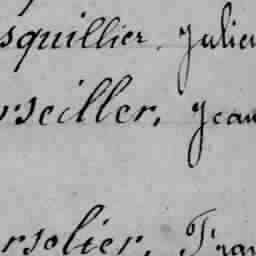 squillier. Julien
rseiller, Jean
rsolier, Fran